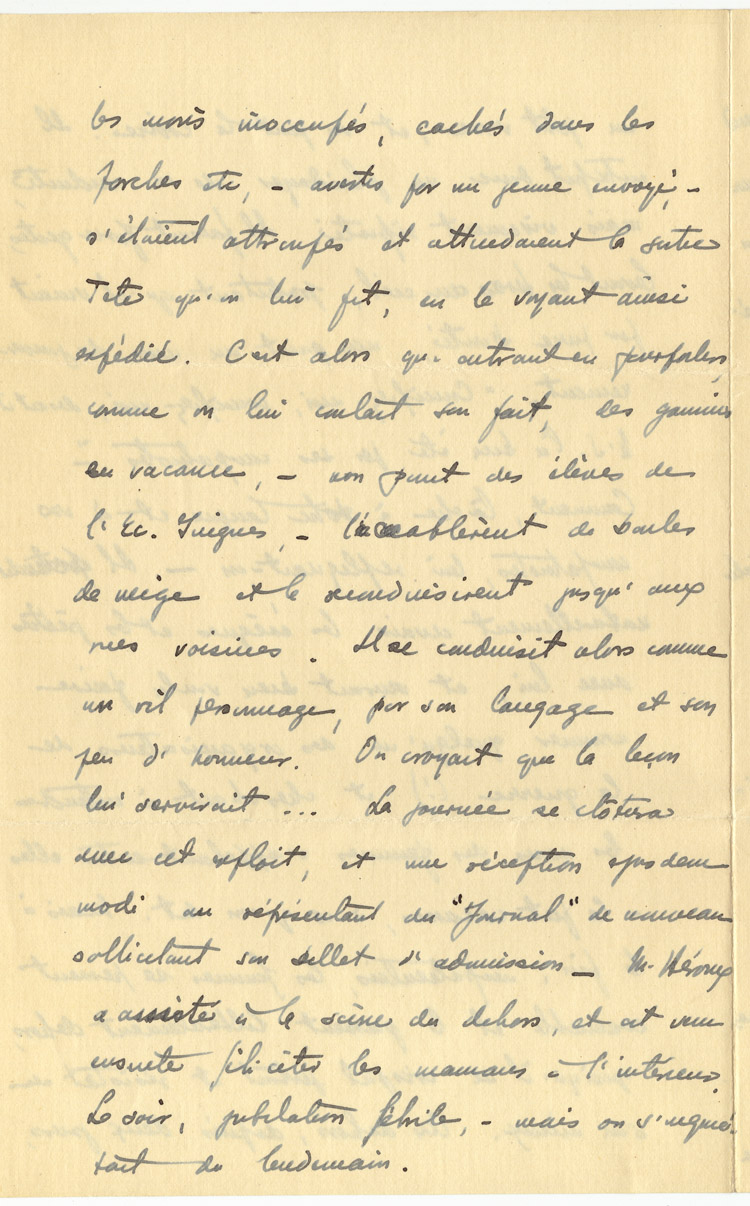 les moins inoccupés, cachés dans les
porches etc, – avertis par un jeune envoyé, –
s'étaient attroupés et attendaient la sortie
Tête qu'on lui fit, en le voyant ainsi
expédié. C'est alors qu'entrant en pourparlers,
comme on lui contait son fait, des gamins
en vacance, – non point des élèves de
l'Ec. Guigues, – l'accablèrent de boules
de neige et le reconduisirent jusqu'aux
rues voisines. Il se conduisit alors comme
un vil personnage, par son langage et son
peu d'honneur. On croyait que la leçon
lui servirait ... La journée se clôtura
avec cet exploit, et une réception ejusdem
modi au représentant du "Journal" de nouveau
sollicitant son billet d'admission – M. Héroux
a assisté à la scène du dehors, et est venu
ensuite féliciter les mamans à l'intérieur.
Le soir, jubilation fébrile, – mais on s'inquié-
tait du lendemain.